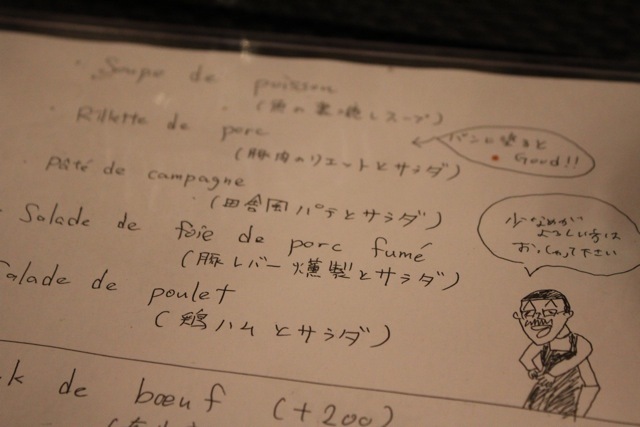 ・Soupe de poisson
(魚の裏ごしスープ)
・Rillette de porc
(豚肉のリエットとサラダ)
パンに塗ると
Good!!
・pâté de campagne
(田舎風パテとサラダ)
・Salade de foie de porc fumé
(豚レバー燻製とサラダ)
少なめが
よろしい方は
おっしゃって下さい
Salade de poulet
(鶏ハムとサラダ)
k de bœuf (+200)